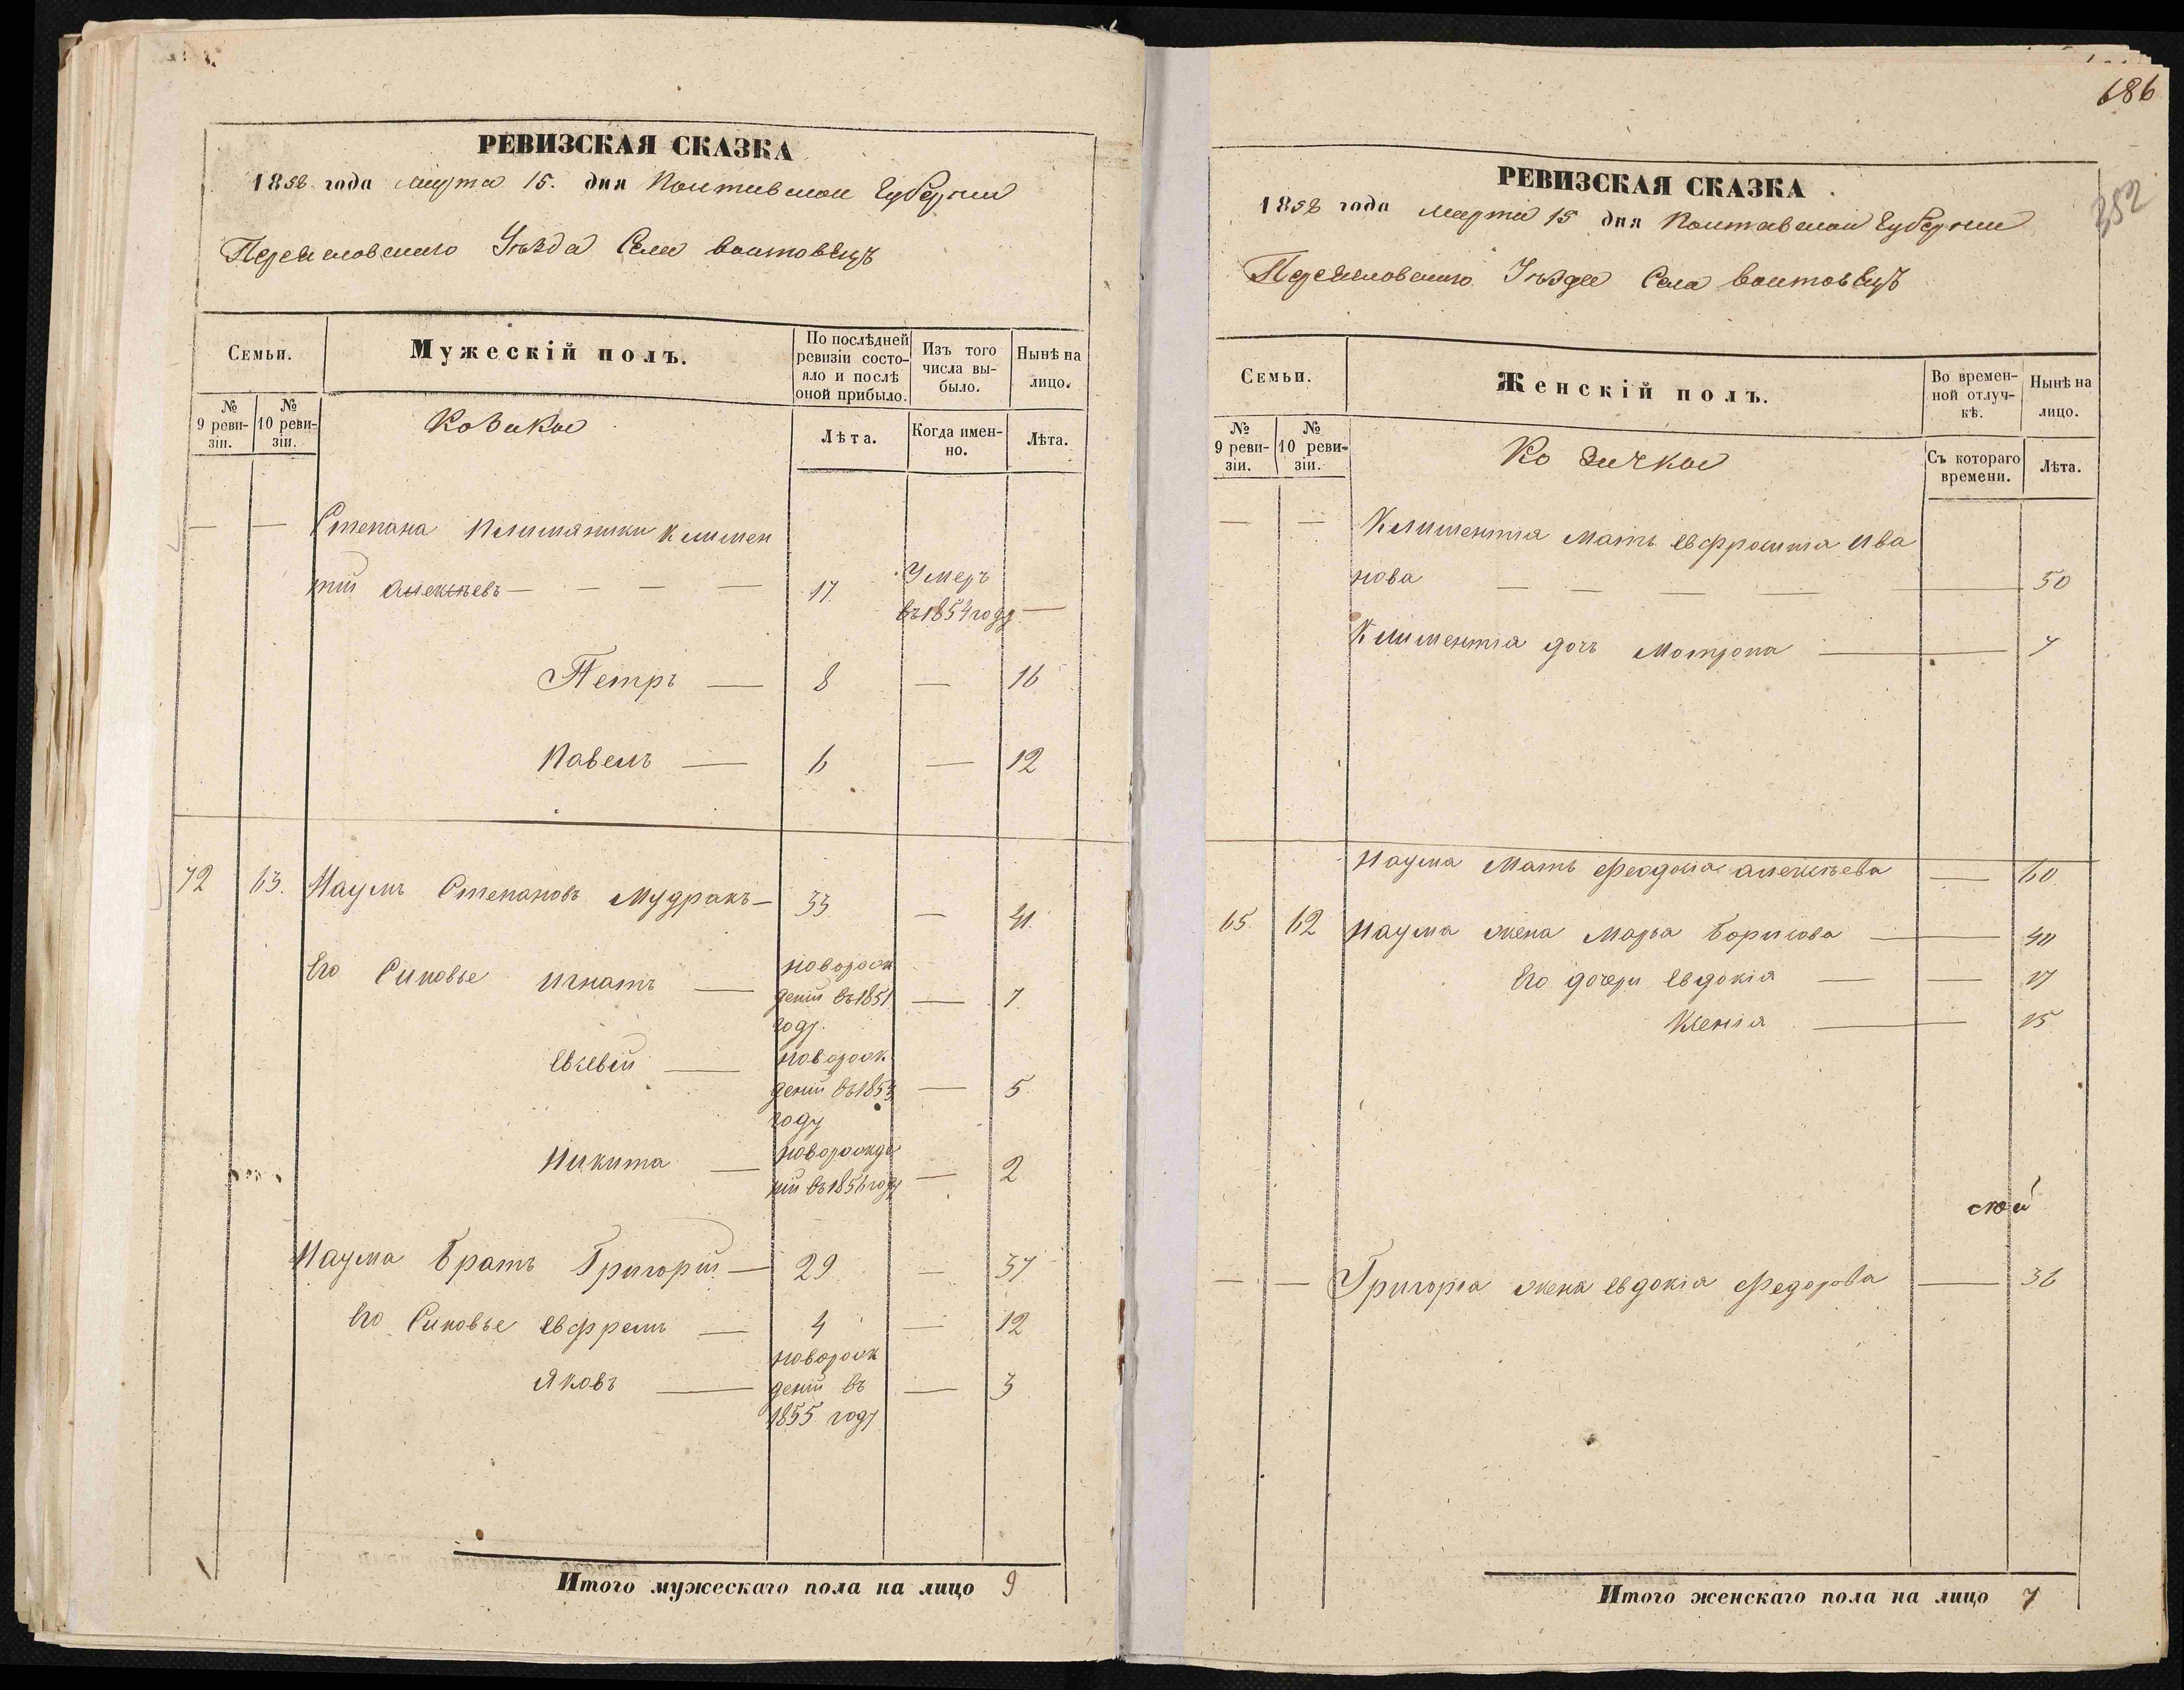 РЕВИЗСКАЯ СКАЗКА
1858 года Марта 15. дня Полтавской Губернии
Переяславского Уѣзда Села Воитовецъ
Семьи.
Мужескій полъ.
По послѣдней ревизіи состояло и послѣ оной прибыло.
Изъ того числа выбыло.
Нынѣ на лицо.
№ 9 ревизіи.
№ 10 ревизіи.
Козаки
Лѣта.
Когда именно.
Лѣта.
— — Степана племяники Климен
тий Алексѣевъ — — — — 17 Умеръ въ 1854 году —
Петръ — 8 — 16
Павелъ — 6 — 12
72 63. Наумъ Степановъ Мудракъ — 33 — 41.
Его Синовье Игнатъ — новорож
деній въ 1851 — 7
году.
Евсевий — новорож
деній въ 1853 — 5
году
Никита — новорожде
ній въ 1856 году — 2
Наума Братъ Григорій — 29 — 37
Его Синовье Евфремъ — 4 — 12
Яковъ — новорож
деній въ — 3
1855 году
Итого мужескаго пола на лицо 9
686
352
РЕВИЗСКАЯ СКАЗКА
1858 года Марта 15 дня Полтавской Губернии
Переяславского Уѣзда Села Воитовецъ
Семьи.
Женскій полъ.
Во временной отлучкѣ.
Нынѣ на лицо.
№ 9 ревизіи.
№ 10 ревизіи.
Козачки
Съ котораго времени.
Лѣта.
— — Климентія Мать Евфросинія Ива
нова — — — — 50
Климентія дочь Мотрона — 7
Наума Мать Феодосія Алексѣева — 60
65. 62 Наума жена Марья Борисова — 40
Его дочери Евдокія — — 17
Ксенія — 15
— — Григорія жена Евдокія Федорова — 36
Итого женскаго пола на лицо 7